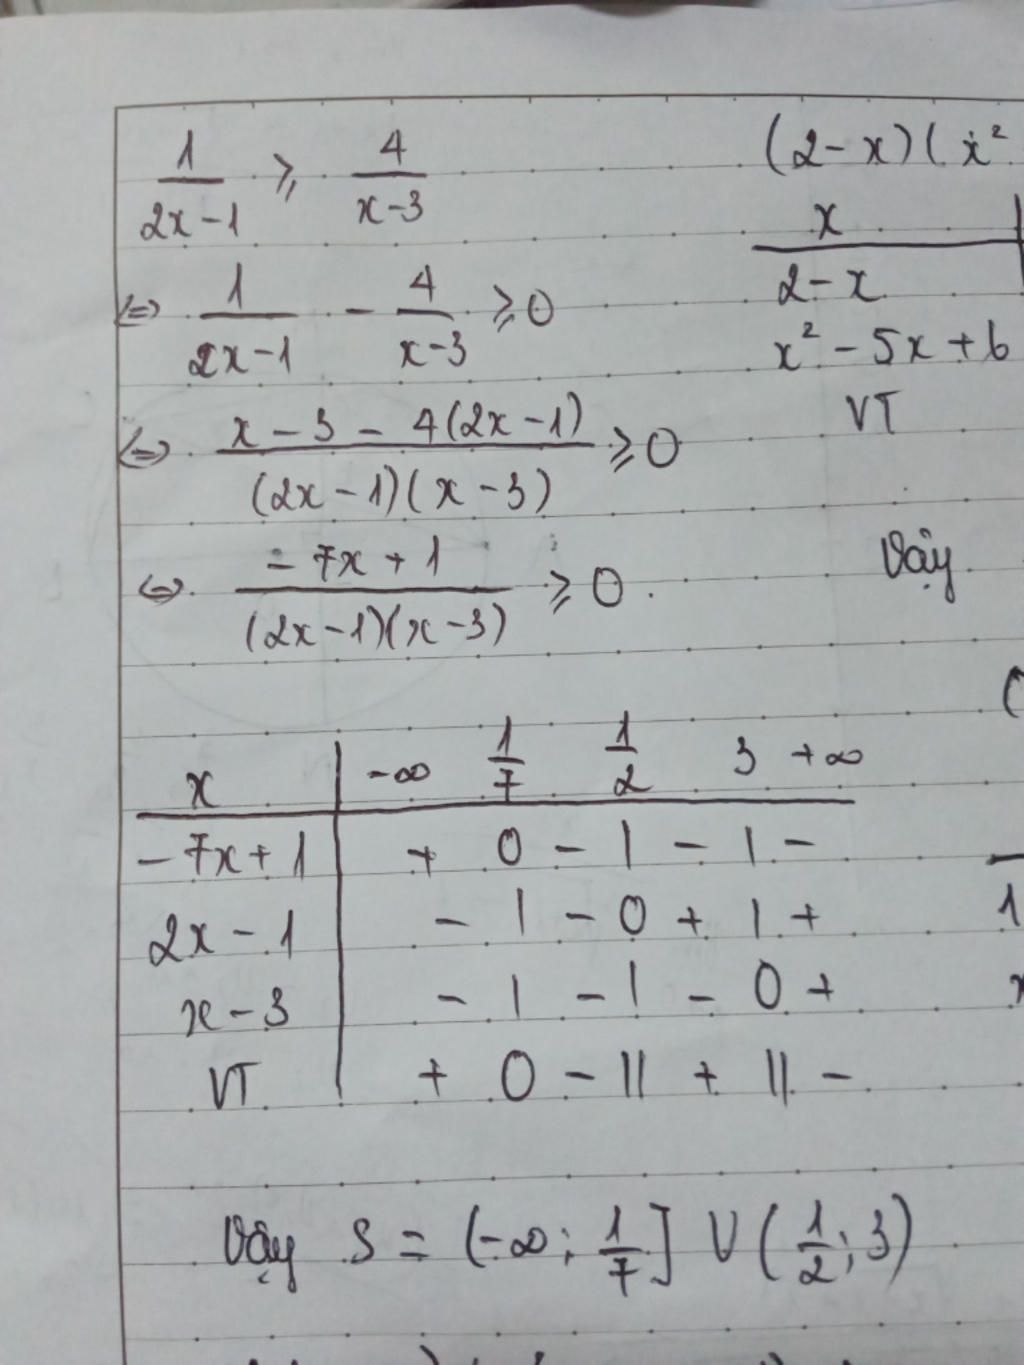 1/(2x-1) ⩾ 4/(x-3)
⇔ 1/(2x-1) - 4/(x-3) ⩾ 0
⇔ (x-3-4(2x-1))/((2x-1)(x-3)) ⩾ 0
⇔ (-7x+1)/((2x-1)(x-3)) ⩾ 0.
x | -∞ 1/7 1/2 3 +∞
-7x+1 | + 0 - | - | -
2x-1 | - | - 0 + | +
x-3 | - | - | - 0 +
VT | + 0 - || + || -
Vậy S = (-∞; 1/7] ∪ (1/2; 3)
(2-x)(x²
x
2-x
x² - 5x + 6
VT
Vậy